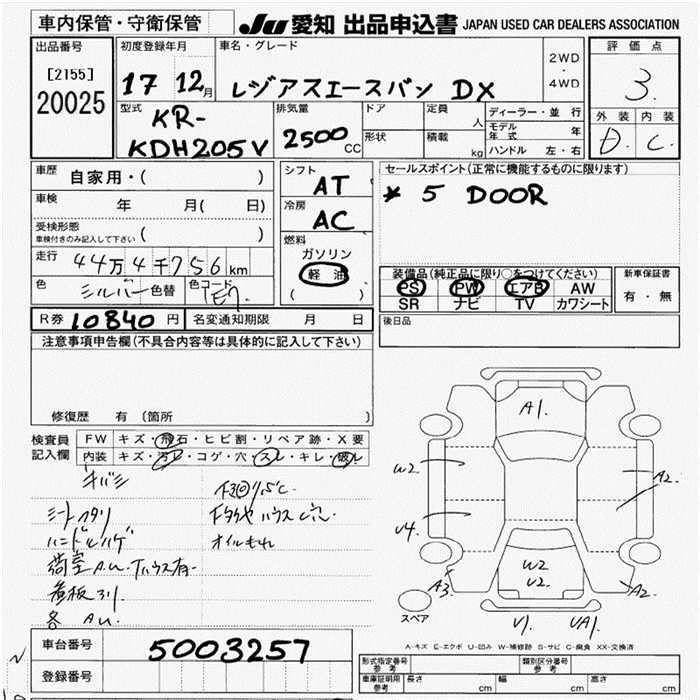 車内保管・守衛保管
JU 愛知 出品申込書 JAPAN USED CAR DEALERS ASSOCIATION
出品番号
[2155]
20025
初度登録年月
17 12月
車名・グレード
レジアスエースバン DX
2WD
・
4WD
評価点
3.
外装 内装
D. C.
型式
KR-
KDH205V
排気量
2500 CC
ドア
形状
定員 人
積載 kg
ディーラー・並行
モデル年式 年
ハンドル 左・右
車歴 自家用・( )
車検 年 月( 日)
受検形態
車検付きのみ記入して下さい ( )
走行 44万4千756km
色 シルバー 色替
色コード 1E7
シフト
AT
冷房
AC
燃料
ガソリン
軽油
( )
セールスポイント(正常に機能するものに限ります)
* 5 DOOR
装備品(純正品に限り○をつけてください)
PS PW エアB AW
SR ナビ TV カワシート
新車保証書
有・無
R券 10840円
名変通知期限 月 日
後日品
注意事項申告欄(不具合内容等は具体的に記入して下さい)
修復歴 有 (箇所 )
検査員
記入欄
FW キズ・飛石・ヒビ割・リペア跡・X要
内装 キズ・汚レ・コゲ・穴・スレ・キレ・破レ
キバミ
シートヘタリ
ハンドルハゲ
荷室A.U.
看板
各 A.U.
下回りサビ
オイルもれ
A1.
W2
U4
A2.
W2
U2.
A3
A2.
スペア
V1.
UA1.
A-キズ E-エクボ U-凹み W-補修跡 S-サビ C-腐食 XX-交換済
車台番号
5003257
登録番号
型式指定番号
参考
類別区分番号
参考
車庫証明用
参考
長さ cm
幅 cm
高さ cm